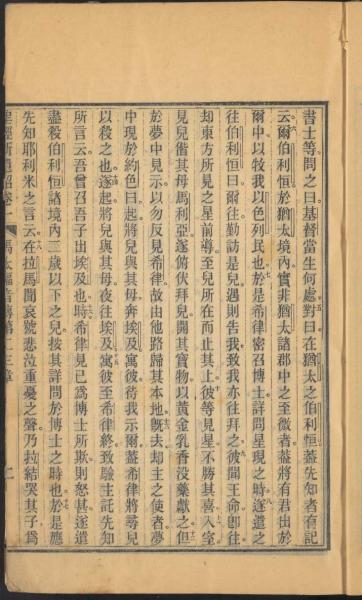 書士等問之曰基督當生何處對曰在猶太之伯利恒蓋先知者有記
云爾伯利恒於猶太境內實非猶太諸郡中之至微者蓋將有君出於
爾中以牧我以色列民也於是希律密召博士詳問星現之時遂遣之
往伯利恒曰爾往勤訪是兒遇則告我致我亦往拜之彼聞王命卽往
却東方所見之星前導至兒所在而止其上彼等見星不勝其喜入室
見兒偕其母馬利亞遂俯伏拜兒開其寶物以黃金乳香没藥獻之但
於夢中見示以勿反見希律故由他路歸其本地旣去却主之使者夢
中現於約色曰起將兒與其母奔埃及寓彼待我示爾蓋希律將尋兒
以殺之也遂起將兒與其母夜往埃及寓彼至希律終致驗主託先知
所言云吾曾召吾子出埃及也時希律見已為博士所欺則怒甚遂遣
盡殺伯利恒諸境內二歲以下之兒按其詳問於博士之時也於是應
先知耶利米之言云在拉馬聞哀號悲泣重憂之聲乃拉結哭其子為
馬太福音傳第二三章 二